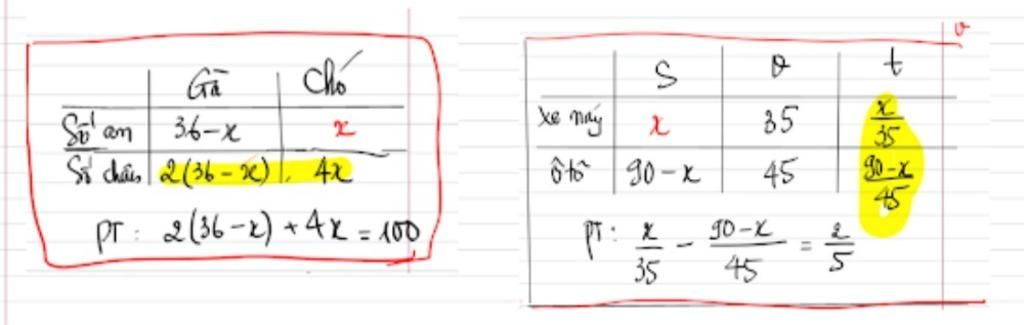 Gà Chó
Số con 36-x x
Số chân 2(36-x) 4x
PT: 2(36-x) + 4x = 100
S v t
xe máy x 35 x/35
ô tô 90-x 45 90-x/45
PT: x/35 - 90-x/45 = 2/5